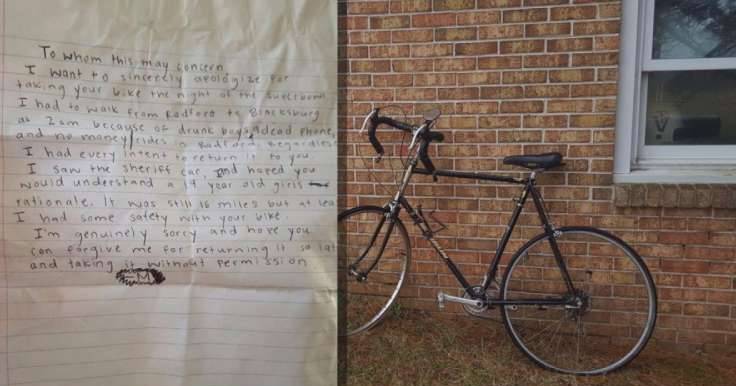 To whom this may concern,
I want to sincerely apologize for
taking your bike the night of the superbowl.
I had to walk from Radford to Blacksburg
at 2am because of drunk boys, dead phone,
and no money/rides. Radford Regardless
I had every intent to return it to you
I saw the sheriff car, and hoped you
would understand a 19 year old girls
rationale. It was still 16 miles but at lea
I had some safety with your bike.
I'm genuinely sorry and hope you
can forgive me for returning it so lat
and taking it without permission
-M